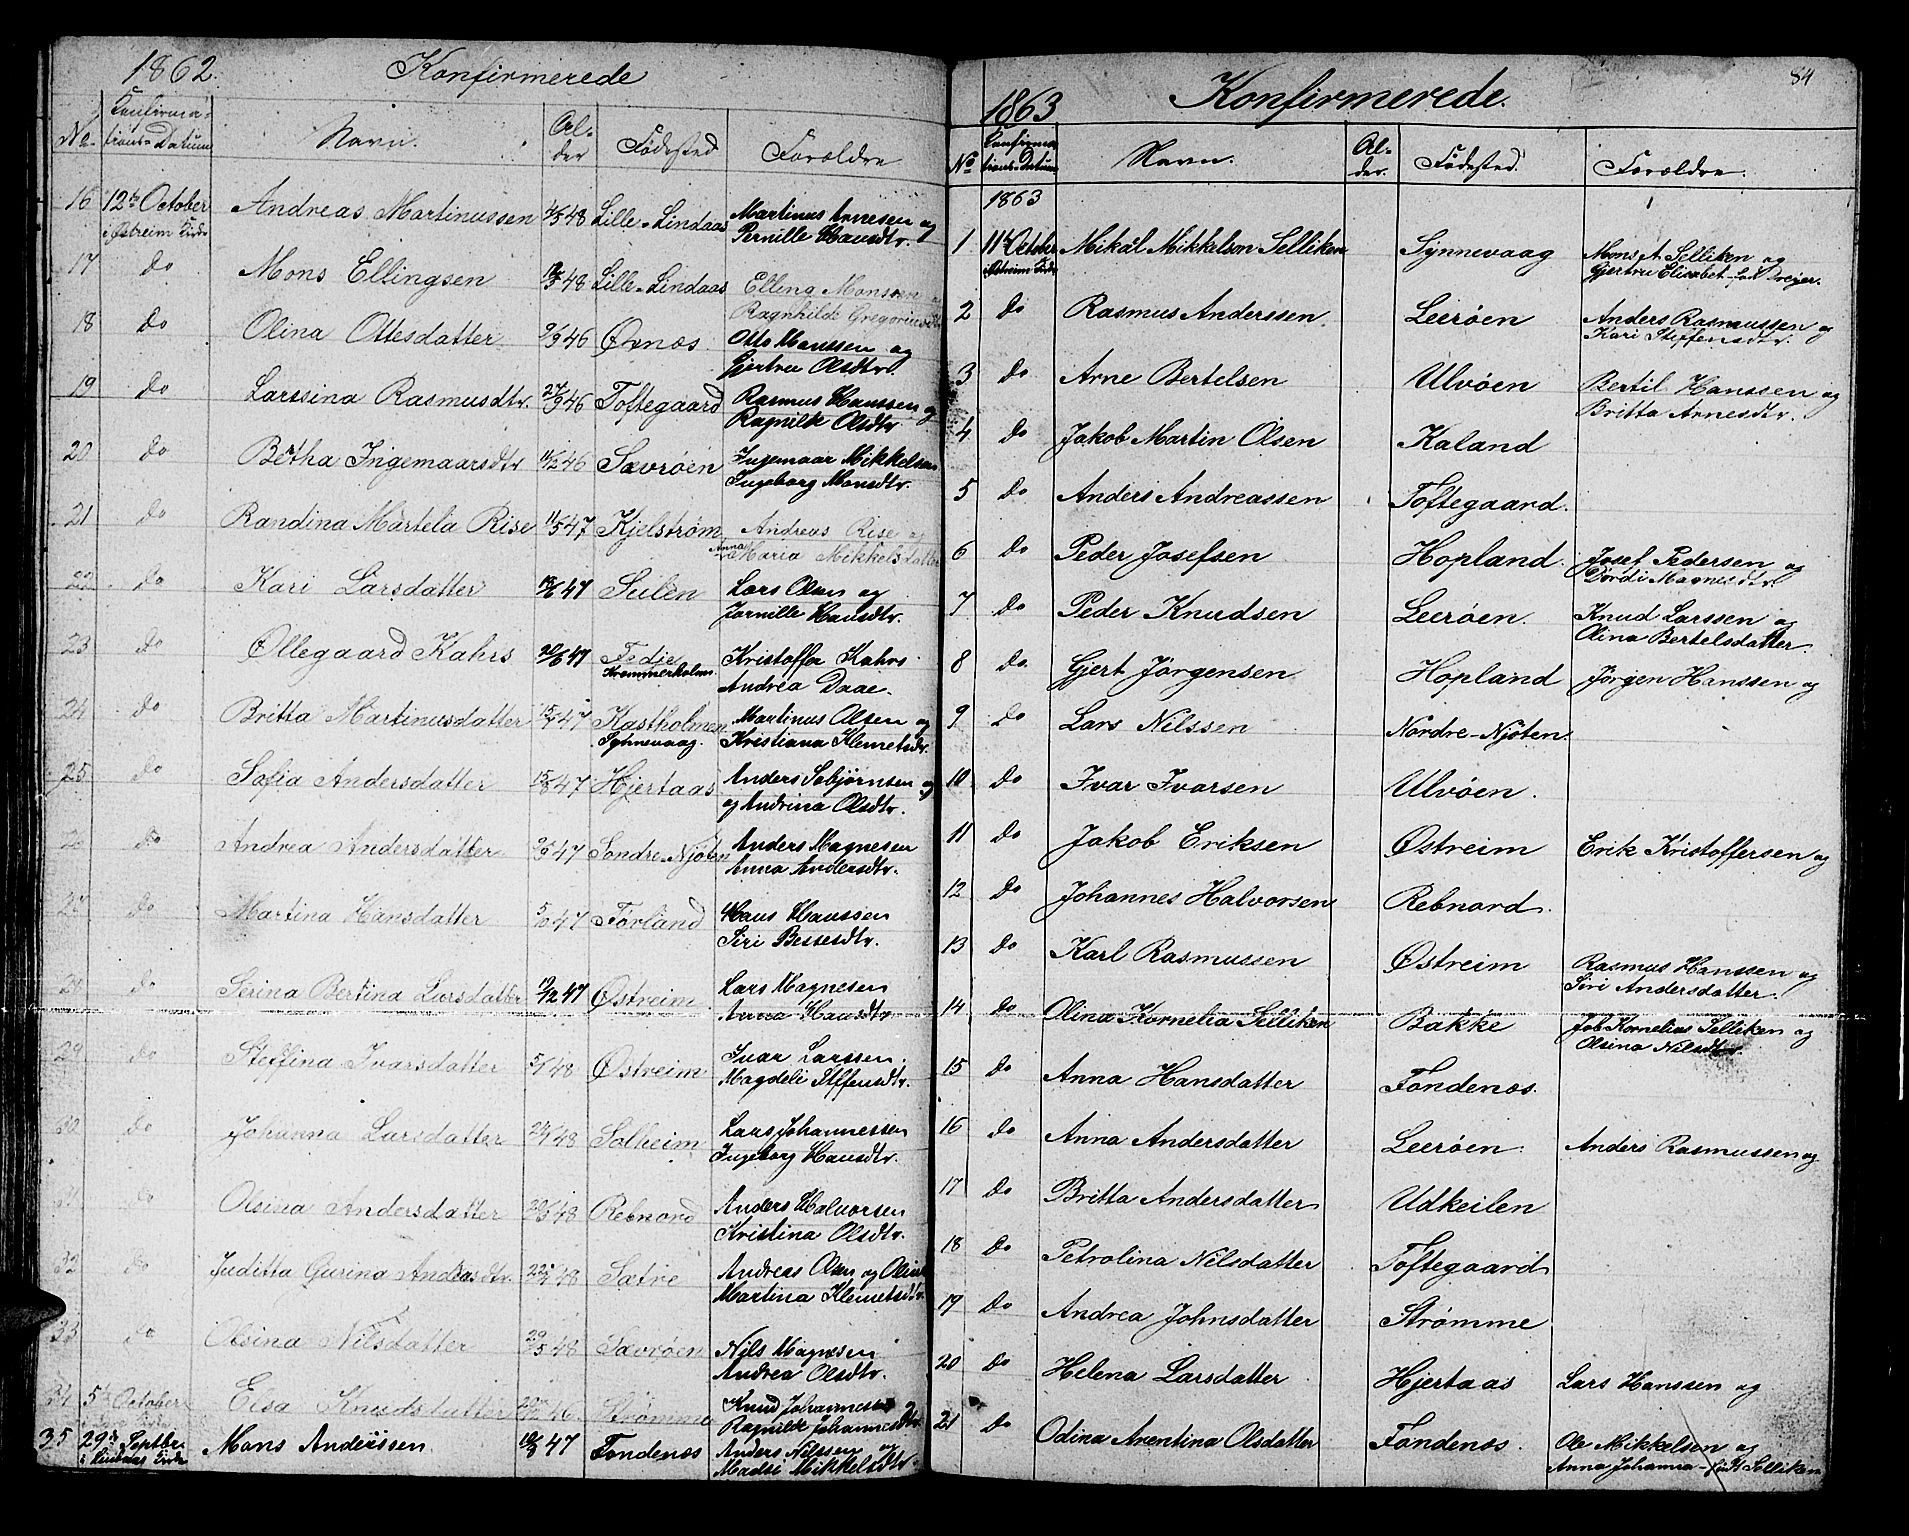 1862. Konfirmerede
No. Konfirma-
tions-Datum Navn. Al-
der Fødested Forældre
16 12te October
i Østreim Kirke Andreas Martinussen 48 Lille-Lindaas Martinus Arnesen og
Pernille Hansdtr.
17 do Mons Ellingsen 48 Lille-Lindaas Elling Monsen og
Ragnhilde Gregoriusdtr
18 do Olina Ottesdatter 9/9 46 Øvnæs Otto Hanssen og
Gjertru Olsdtr.
19 do Larssina Rasmusdtr. 24/9 46 Toftegaard Rasmus Hanssen og
Ragnilk Olsdtr
20 do Bertha Ingemaarsdtr 11/12 46 Sævrøen Ingemaar Mikkelsen
Ingeborg Monsdtr.
21 do Randina Martela Rise 11/5 47 Kjelstrøm Andreas Rise og
Anna Maria Mikkelsdatter
22 do Kari Larsdatter 47 Sulen Lars Olsen og
Jarnille Hansdtr.
23 do Øllegaard Kahrs 47 Fedje
Kræmmerholm. Kristoffer Kahrs
Andrea Daae.
24 do Britta Martinusdatter 15/7 47 Kastholmen
Synnevaag. Martinus Olsen og
Kristiana Klemetsdtr.
25 do Sofia Andersdatter 15/8 47 Hjertaas Anders Sebjørnsen og
og Andrina Olsdtr.
26 do Andrea Andersdatter 47 Søndre-Njøten Anders Magnesen
Anna Andersdtr.
27 do Martina Hansdatter 5/10 47 Førland Hans Hanssen
Siri Bessesdtr.
28 do Serina Bertina Larsdatter 12 47 Østreim Lars Magnesen
Anna Hansdtr
29 do Steffina Ivarsdatter 5/1 48 Østreim Ivar Larssen.
Magdeli Steffensdtr.
30 do Johanna Larsdatter 24/1 48 Solheim Lars Johannessen
Ingeborg Hansdtr.
31 do Olsina Andersdatter 48 Rebnord Anders Halvorsen
Kristina Olsdtr.
32 do Juditta Gurina Andreasdtr. 48 Sætre Andreas Olsen og Olina
Martina Klemetsdtr.
33 do Olsina Nilsdatter 29/5 48 Sævrøen Nils Magnesen
Andrea Olsdtr.
34 5te October Elsa Knudsdatter 46 Strømme Knud Johannessen
Ragnilde Johannesdtr.
35 29de Septbr.
i Lindaas Kirke Mons Anderssen. 47 Fondenæs Anders Nilssen og
Madsi Mikkelsdtr.
84
1863 Konfirmerede.
No Konfirma-
tions-Datum Navn. Al-
der. Fødested. Forældre.
1863
1 11te October
i Østreim Kirke Mikal Mikkelson Selliken Synnevaag Mons A Selliken og
Gjertru Elisabet fød Dreyer.
2 do Rasmus Anderssen. Leerøen Anders Rasmussen og
Kari Steffensdtr.
3 do Arne Bertelsen Ulvøen Bertil Hanssen og
Britta Arnesdtr.
4 do Jakob Martin Olsen Kaland
5 do Anders Andreassen Toftegaard.
6 do Peder Josefsen Hopland. Josef Pedersen og
Dordi Magnesdtr.
7 do Peder Knudsen Leerøen. Knud Larssen og
Olina Bertelsdatter
8 do Gjert Jörgensen Hopland Jörgen Hanssen og
9 do Lars Nilssen Nordre-Njöten.
10 do Ivar Ivarsen Ulvøen.
11 do Jakob Eriksen Østreim Erik Kristoffersen og
12 do Johannes Halvorsen Rebnord.
13 do Karl Rasmussen Østreim Rasmus Hanssen og
Siri Andersdatter.
14 do Olina Kornelia Selliken Bakke Job Kornelius Selliken og
Olsina Nilsdtr.
15 do Anna Hansdatter Fondenæs.
16 do Anna Andersdatter Leerøen. Anders Rasmussen og
17 do Britta Andersdatter Udkeilen
18 do Petrolina Nilsdatter Toftegaard
19 do Andrea Johnsdatter Strømme
20 do Helena Larsdatter Hjertaas Lars Hanssen og
21 do Odina Arentina Olsdatter Fondenæs. Ole Mikkelsen og
Anna Johanna fød Selliken